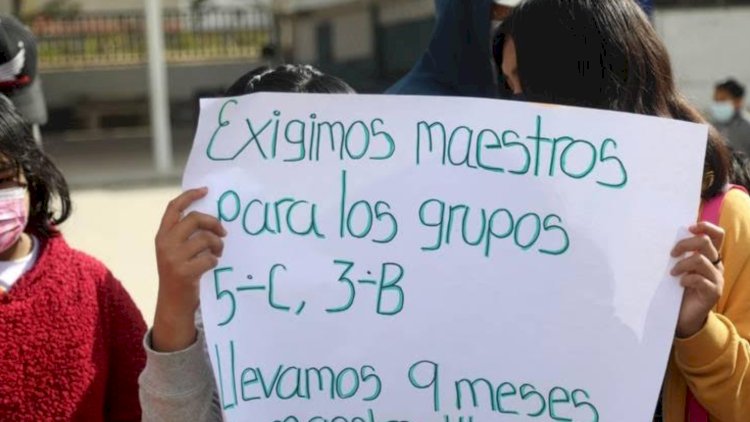 Exigimos maestros
para los grupos
5÷C, 3÷B
llevamos 9 meses